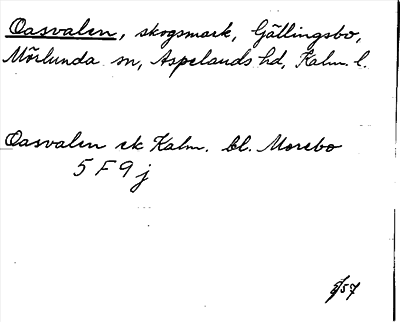 Oasvalen, skogsmark, Gällingsbo,
Mörlunda sn, Aspelands hd, Kalm. l.
Oasvalen ek Kalm. bl. Morebo
5 F 9 j